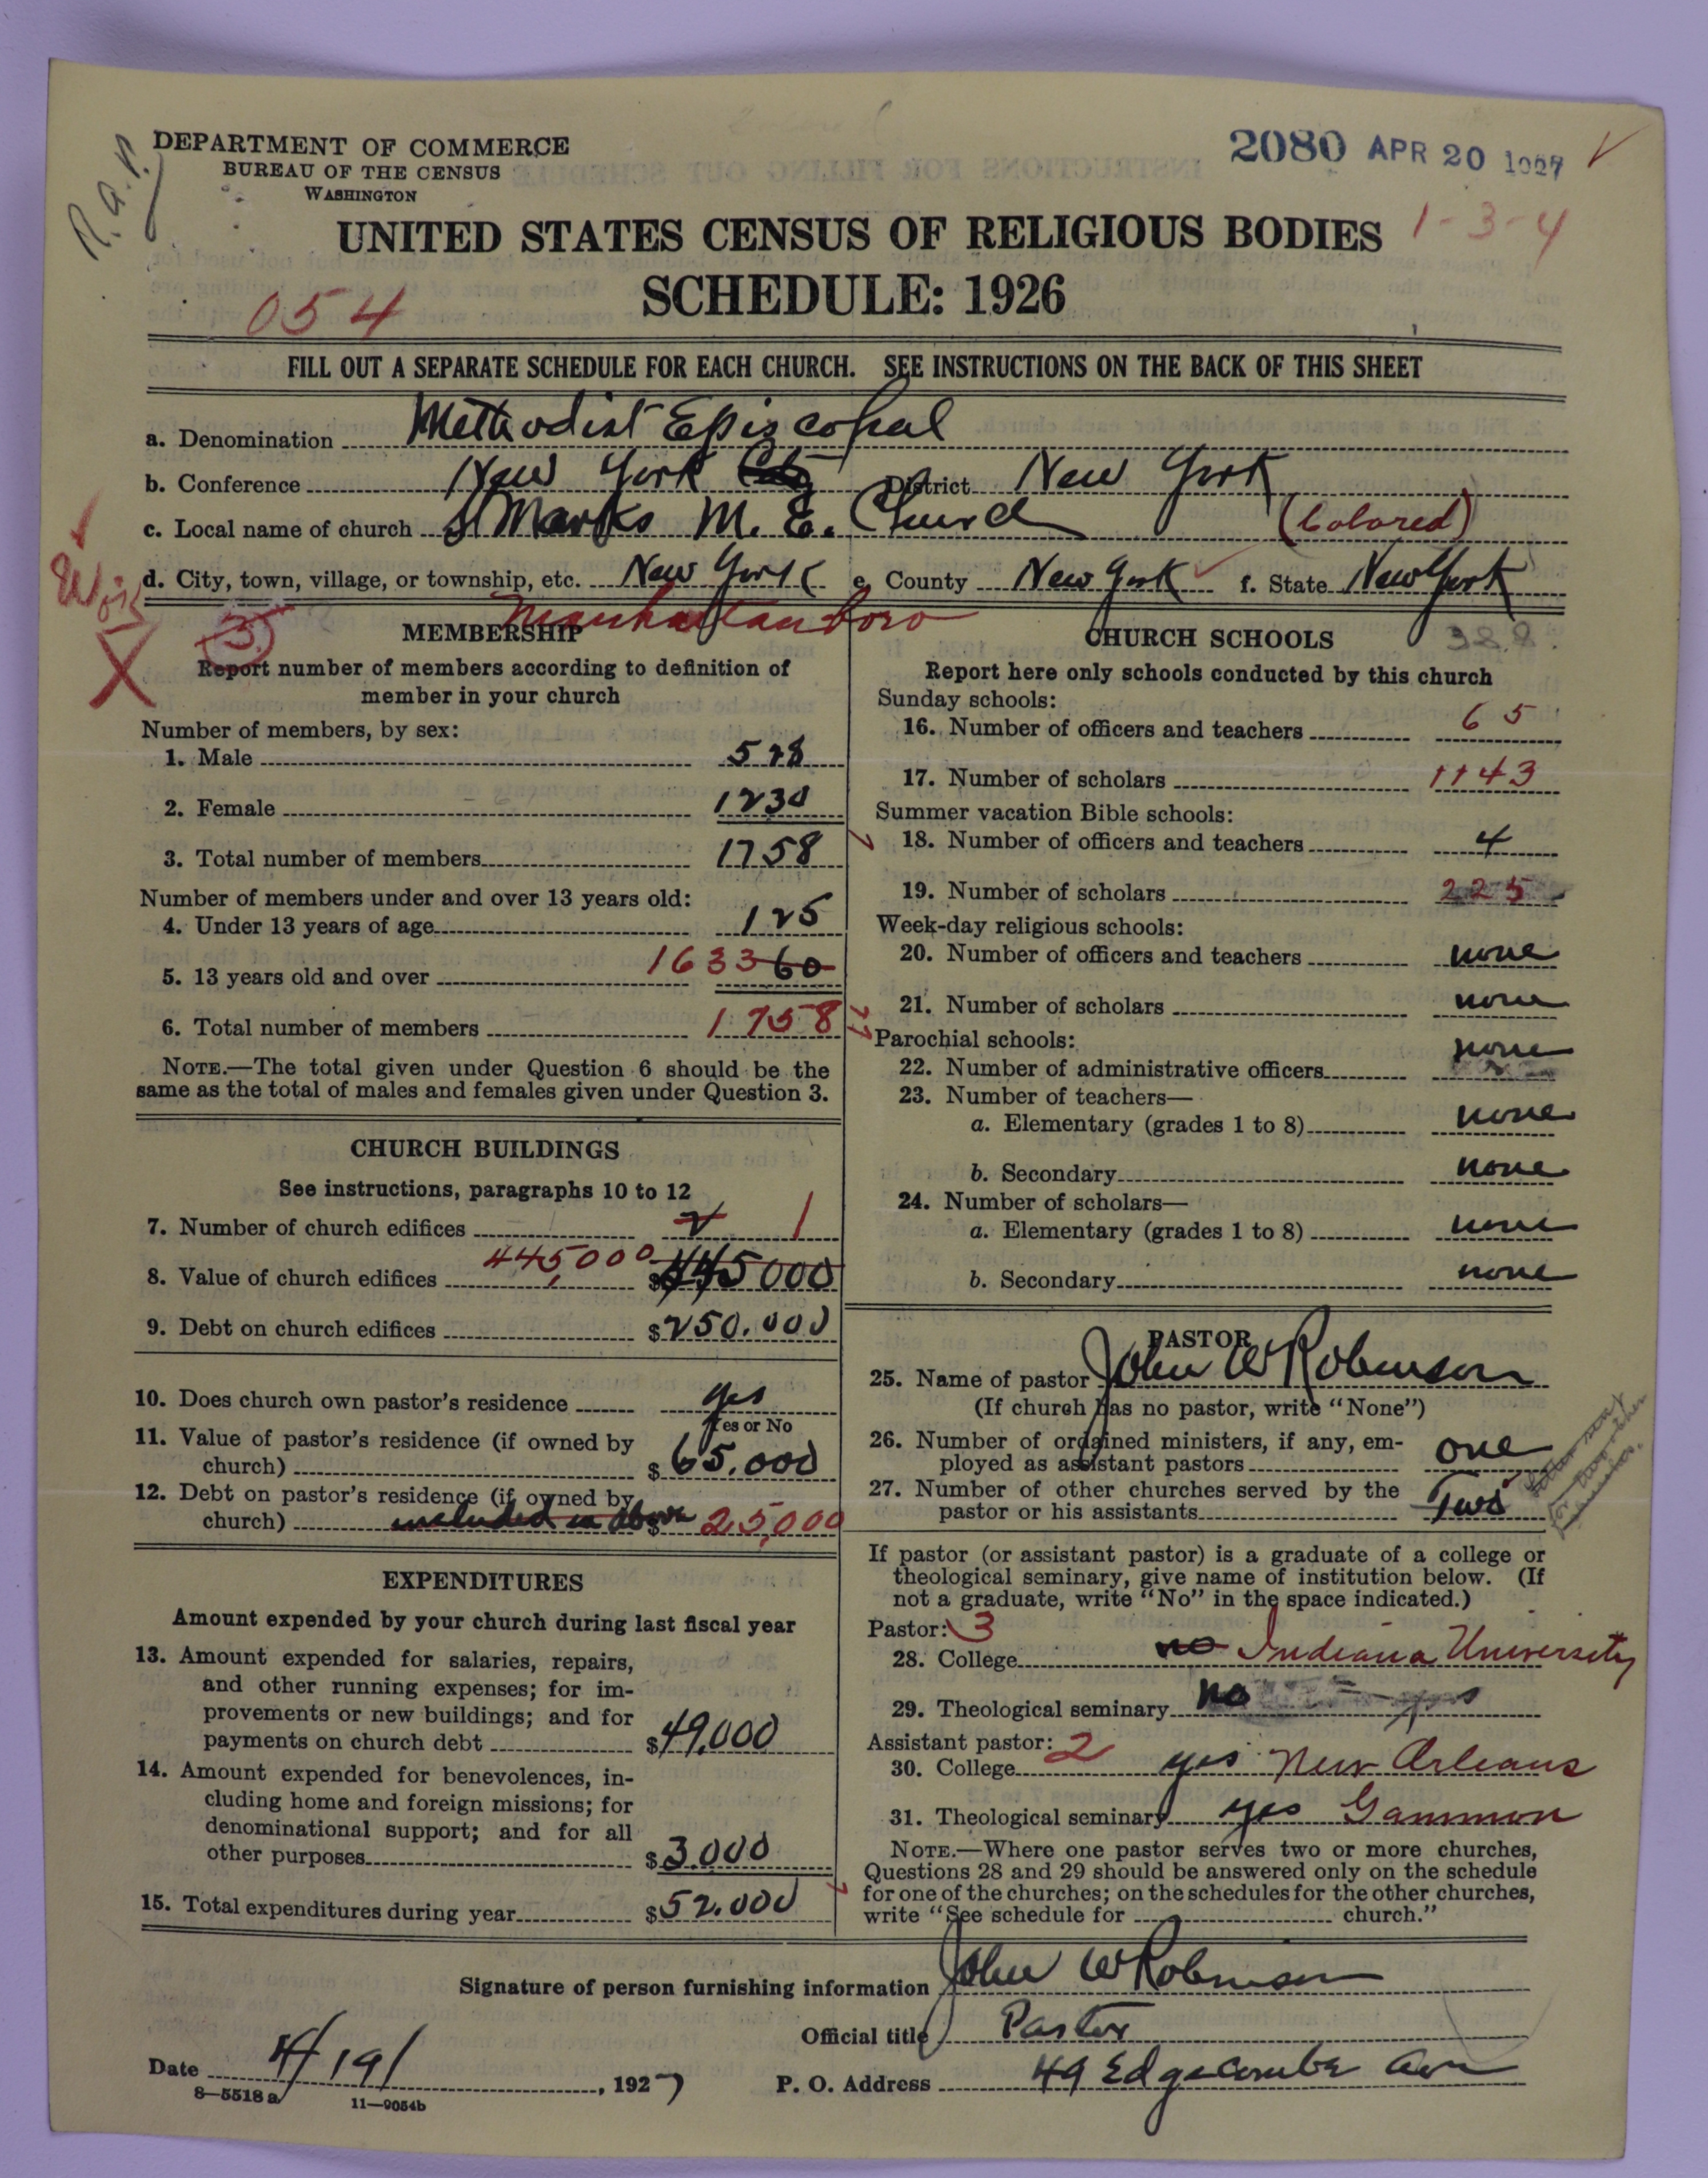 R.A.P.
DEPARTMENT OF COMMERCE
BUREAU OF THE CENSUS
WASHINGTON
2080 APR 20 1927
UNITED STATES CENSUS OF RELIGIOUS BODIES 1-3-4
SCHEDULE: 1926
054
FILL OUT A SEPARATE SCHEDULE FOR EACH CHURCH. SEE INSTRUCTIONS ON THE BACK OF THIS SHEET
a. Denomination Methodist Episcopal
b. Conference New York City District New York
c. Local name of church St Marks M. E. Church (Colored)
d. City, town, village, or township, etc. New York e. County New York f. State New York
Manhattan boro
3
MEMBERSHIP
Report number of members according to definition of
member in your church
Number of members, by sex:
1. Male 528
2. Female 1230
3. Total number of members 1758
Number of members under and over 13 years old:
4. Under 13 years of age 125
5. 13 years old and over 1633 60
6. Total number of members 1758
NOTE.—The total given under Question 6 should be the
same as the total of males and females given under Question 3.
CHURCH BUILDINGS
See instructions, paragraphs 10 to 12
7. Number of church edifices 2 1
8. Value of church edifices 445,000 $445000
9. Debt on church edifices $250.000
10. Does church own pastor's residence yes
Yes or No
11. Value of pastor's residence (if owned by
church) $65.000
12. Debt on pastor's residence (if owned by
church) included in above $25,000
EXPENDITURES
Amount expended by your church during last fiscal year
13. Amount expended for salaries, repairs,
and other running expenses; for im-
provements or new buildings; and for
payments on church debt $49,000
14. Amount expended for benevolences, in-
cluding home and foreign missions; for
denominational support; and for all
other purposes $3.000
15. Total expenditures during year $52.000
CHURCH SCHOOLS 388.
Report here only schools conducted by this church
Sunday schools:
16. Number of officers and teachers 65
17. Number of scholars 1143
Summer vacation Bible schools:
18. Number of officers and teachers 4
19. Number of scholars 225
Week-day religious schools:
20. Number of officers and teachers none
21. Number of scholars none
Parochial schools:
22. Number of administrative officers none
23. Number of teachers—
a. Elementary (grades 1 to 8) none
b. Secondary none
24. Number of scholars—
a. Elementary (grades 1 to 8) none
b. Secondary none
PASTOR
25. Name of pastor John W Robinson
(If church has no pastor, write "None")
26. Number of ordained ministers, if any, em-
ployed as assistant pastors one
27. Number of other churches served by the
pastor or his assistants Two
If pastor (or assistant pastor) is a graduate of a college or
theological seminary, give name of institution below. (If
not a graduate, write "No" in the space indicated.)
Pastor: 3
28. College no Indiana University
29. Theological seminary no
Assistant pastor: 2
30. College yes New Orleans
31. Theological seminary yes Gammon
NOTE.—Where one pastor serves two or more churches,
Questions 28 and 29 should be answered only on the schedule
for one of the churches; on the schedules for the other churches,
write "See schedule for church."
Signature of person furnishing information John W Robinson
Official title Pastor
Date 4/19/, 1927 P. O. Address 49 Edgecombe Ave
8—5518 a 11—9054b